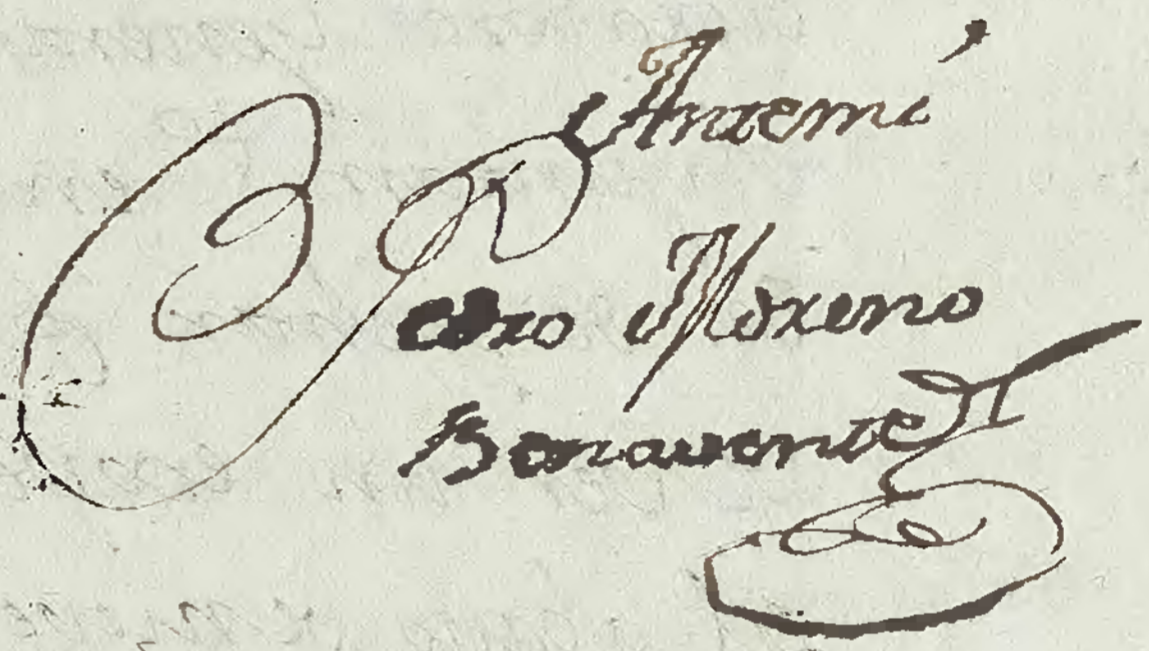 Antemí
Pedro Moreno
Benavente